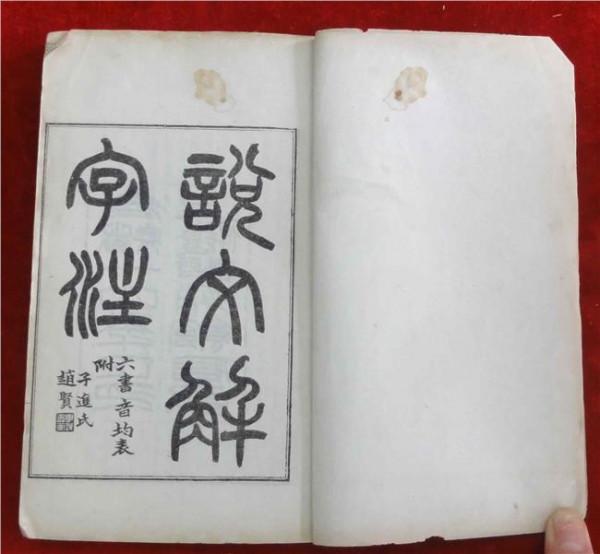 說文解
字注
六書音均表
附
子進氏
趙賢